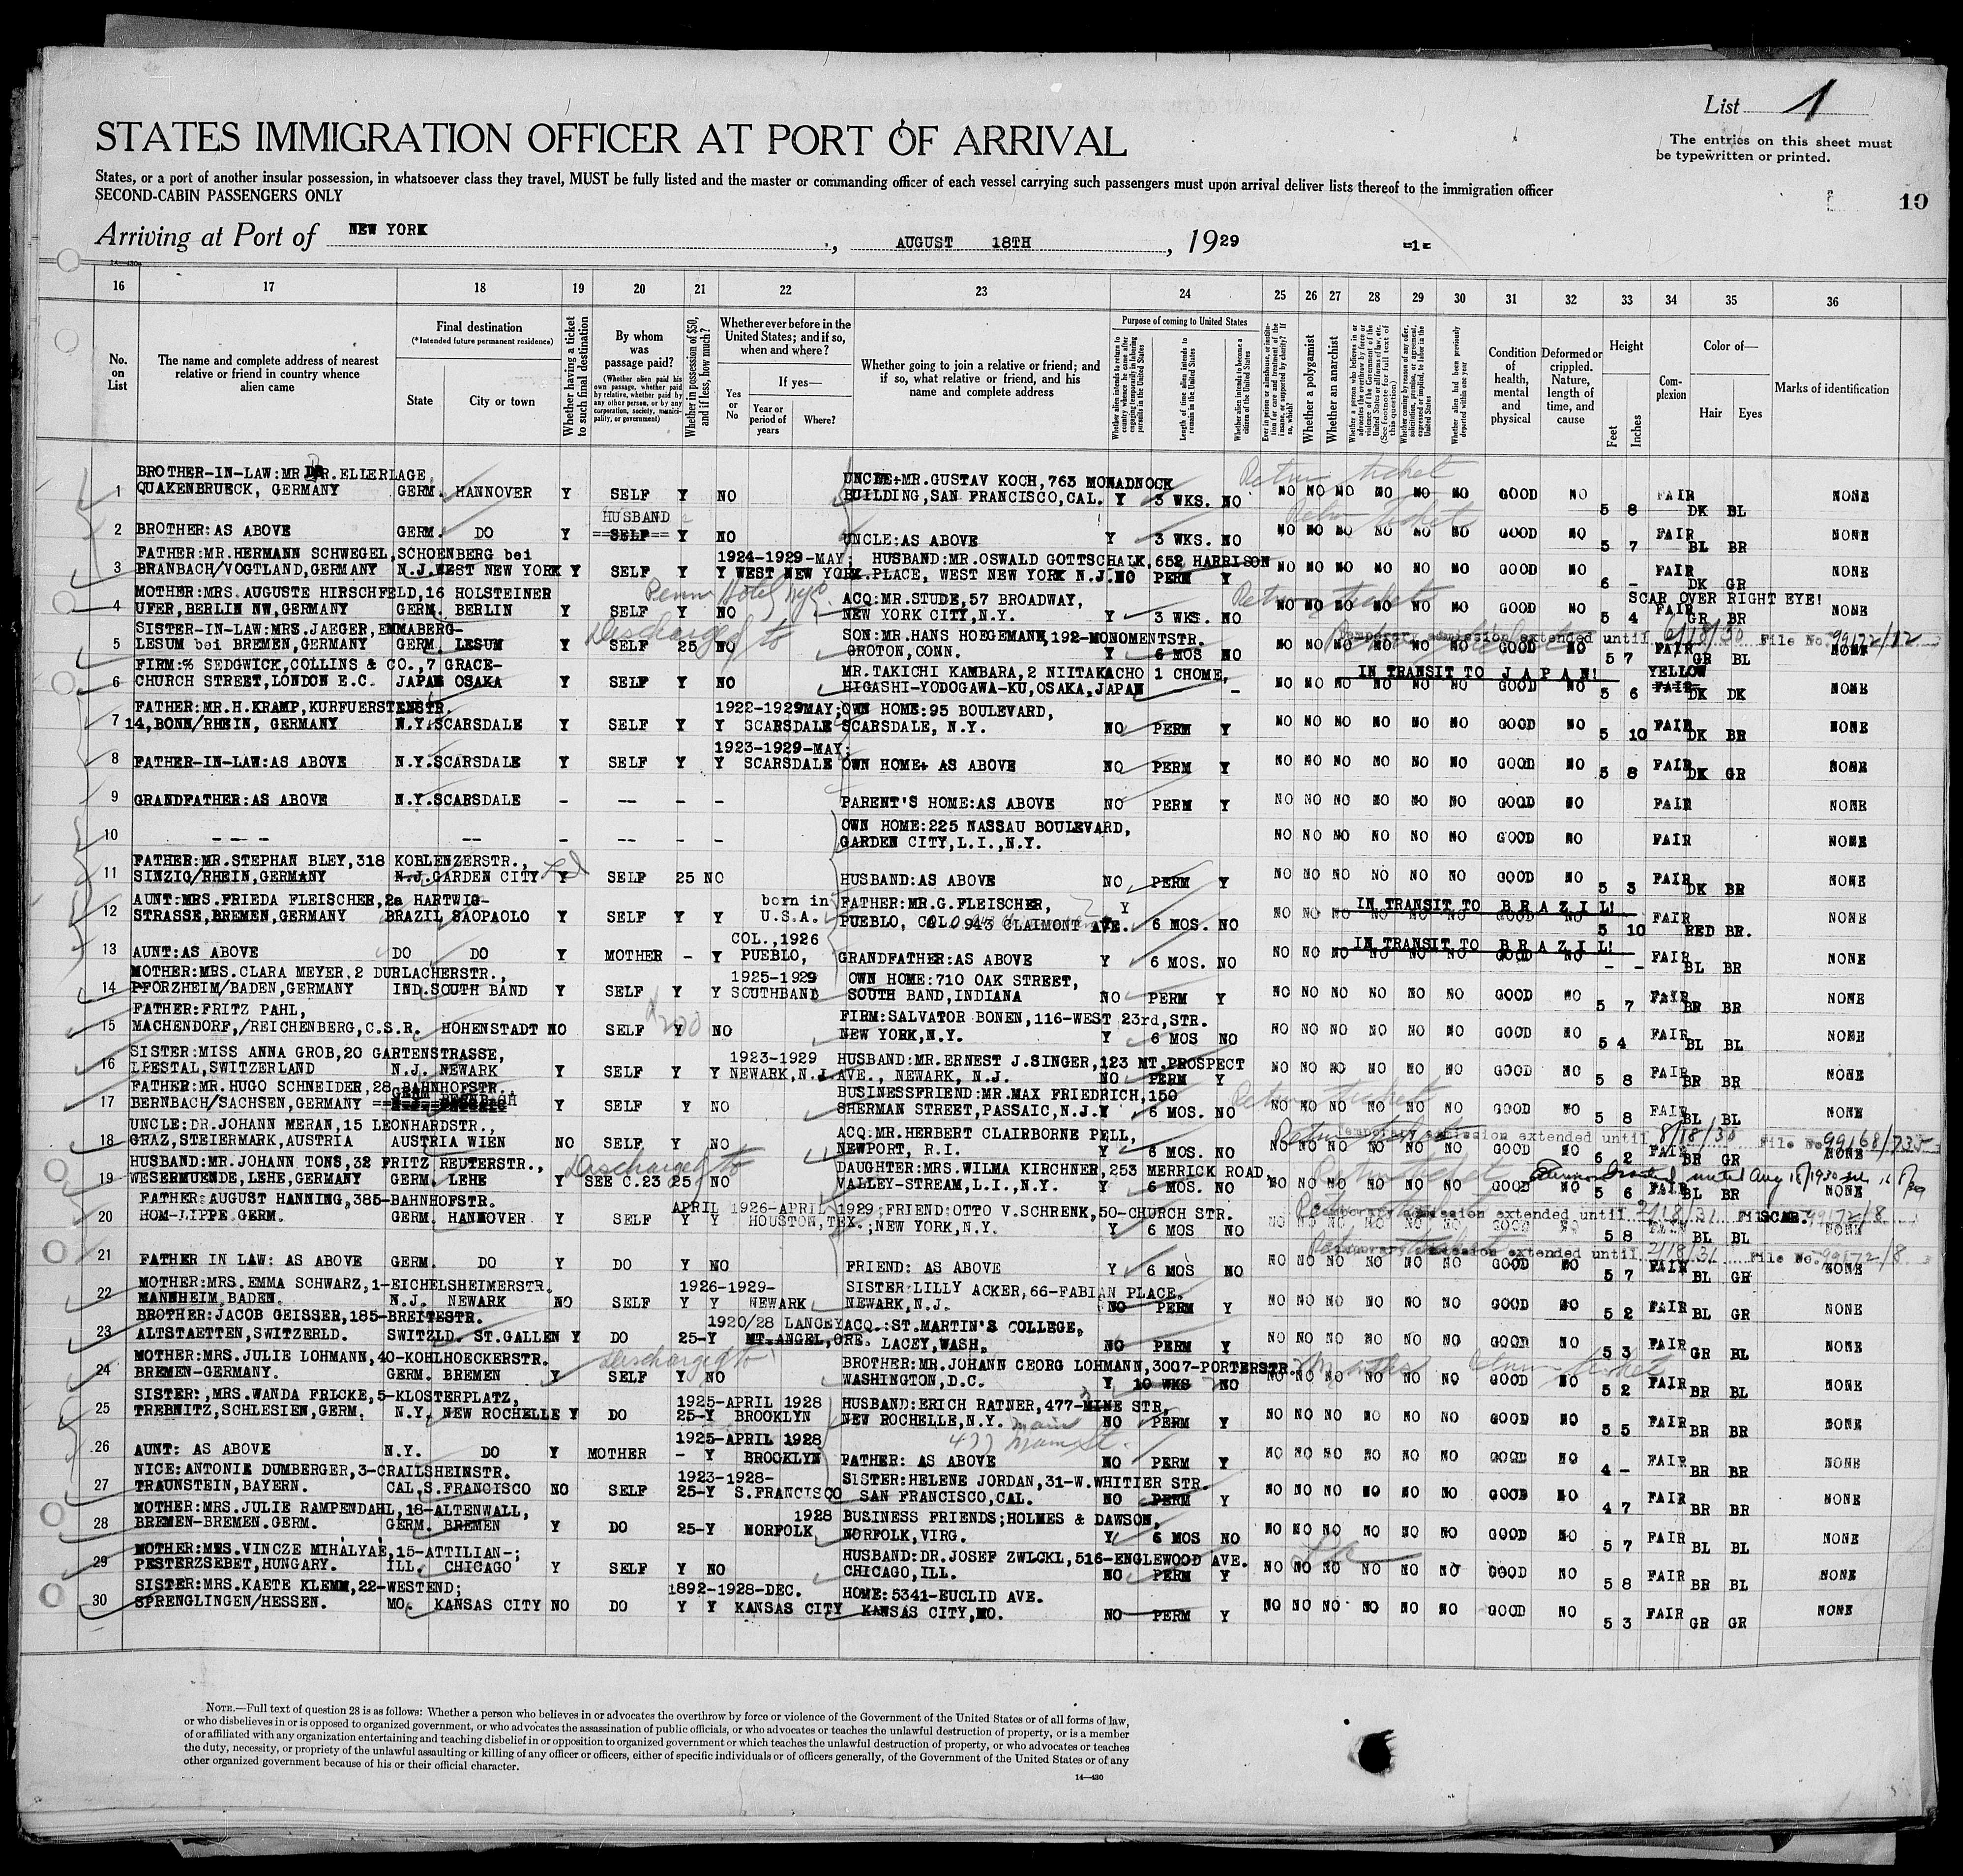 List 1
STATES IMMIGRATION OFFICER AT PORT OF ARRIVAL
The entries on this sheet must
be typewritten or printed.
States, or a port of another insular possession, in whatsoever class they travel, MUST be fully listed and the master or commanding officer of each vessel carrying such passengers must upon arrival deliver lists thereof to the immigration officer
SECOND-CABIN PASSENGERS ONLY
10
Arriving at Port of NEW YORK, AUGUST 18TH, 1929
-1-
14—430
16 17 18 19 20 21 22 23 24 25 26 27 28 29 30 31 32 33 34 35 36
No. on List
The name and complete address of nearest relative or friend in country whence alien came
Final destination
(*Intended future permanent residence)
State
City or town
Whether having a ticket to such final destination
By whom was passage paid?
(Whether alien paid his own passage, whether paid by relative, whether paid by any other person, or by any corporation, society, municipality, or government)
Whether in possession of $50, and if less, how much?
Whether ever before in the United States; and if so, when and where?
Yes or No
If yes—
Year or period of years
Where?
Whether going to join a relative or friend; and if so, what relative or friend, and his name and complete address
Purpose of coming to United States
Whether alien intends to return to country whence he came after engaging temporarily in laboring pursuits in the United States
Length of time alien intends to remain in the United States
Whether alien intends to become a citizen of the United States
Ever in prison or almshouse, or institution for care and treatment of the insane, or supported by charity? If so, which?
Whether a polygamist
Whether an anarchist
Whether a person who believes in or advocates the overthrow by force or violence of the Government of the United States or all forms of law, etc. (See footnote for full text of this question)
Whether coming by reason of any offer, solicitation, promise, or agreement, expressed or implied, to labor in the United States
Whether alien had been previously deported within one year
Condition of health, mental and physical
Deformed or crippled. Nature, length of time, and cause
Height
Feet
Inches
Complexion
Color of—
Hair
Eyes
Marks of identification
BROTHER-IN-LAW:MR.DR.ELLERLAGE, UNCLE+MR.GUSTAV KOCH,763 MONADNOCK Return ticket
1 QUAKENBRUECK, GERMANY GERM. HANNOVER Y SELF Y NO BUILDING,SAN FRANCISCO,CAL. Y 3 WKS. NO NO NO NO NO NO NO GOOD NO 5 8 FAIR DK BL NONE
HUSBAND Return ticket
2 BROTHER:AS ABOVE GERM. DO Y SELF Y NO UNCLE:AS ABOVE Y 3 WKS. NO NO NO NO NO NO NO GOOD NO 5 7 FAIR BL BR NONE
FATHER:MR.HERMANN SCHWEGEL,SCHOENBERG bei 1924-1929-MAY; HUSBAND:MR.OSWALD GOTTSCHALK,652 HARRISON
3 BRANBACH/VOGTLAND,GERMANY N.J.WEST NEW YORK Y SELF Y Y WEST NEW YORK.PLACE, WEST NEW YORK N.J.NO PERM Y NO NO NO NO NO NO GOOD NO 6 - FAIR DK GR NONE
MOTHER:MRS.AUGUSTE HIRSCHFELD,16 HOLSTEINER Penn Hotel nyc ACQ:MR.STUDE,57 BROADWAY, Return ticket SCAR OVER RIGHT EYE!
4 UFER,BERLIN NW,GERMANY GERM. BERLIN Y SELF Y NO NEW YORK CITY,N.Y. Y 3 WKS. NO NO NO NO NO NO NO GOOD NO 5 4 FAIR GR BR NONE
SISTER-IN-LAW:MRS.JAEGER,EMMABERG- Discharged to SON:MR.HANS HOEGEMANN,192-MONOMENTSTR. Temporary admission extended until 6/18/30 File No. 99172/12
5 LESUM bei BREMEN,GERMANY GERM. LESUM Y SELF 25 NO GROTON,CONN. Y 6 MOS NO NO NO NO NO NO NO GOOD NO 5 7 FAIR GR BL NONE
FIRM:% SEDGWICK,COLLINS & CO.,7 GRACE- MR.TAKICHI KAMBARA,2 NIITAKACHO 1 CHOME, IN TRANSIT TO JAPAN! YELLOW
6 CHURCH STREET,LONDON E.C. JAPAN OSAKA Y SELF Y NO HIGASHI-YODOGAWA-KU,OSAKA,JAPAN - NO NO NO NO NO NO GOOD NO 5 6 FAIR DK DK NONE
FATHER:MR.H.KRAMP,KURFUERSTENSTR. 1922-1929MAY;OWN HOME:95 BOULEVARD,
7 14,BONN/RHEIN, GERMANY N.Y.SCARSDALE Y SELF Y Y SCARSDALE SCARSDALE, N.Y. NO PERM Y NO NO NO NO NO NO GOOD NO 5 10 FAIR DK BR NONE
1923-1929-MAY;
8 FATHER-IN-LAW:AS ABOVE N.Y.SCARSDALE Y SELF Y Y SCARSDALE OWN HOME+ AS ABOVE NO PERM Y NO NO NO NO NO NO GOOD NO 5 8 FAIR DK GR NONE
9 GRANDFATHER:AS ABOVE N.Y.SCARSDALE - -- - - PARENT'S HOME:AS ABOVE NO PERM Y NO NO NO NO NO NO GOOD NO FAIR NONE
10 - - - -- -- - - OWN HOME:225 NASSAU BOULEVARD,
GARDEN CITY,L.I.,N.Y. NO NO NO NO NO NO GOOD NO FAIR NONE
FATHER:MR.STEPHAN BLEY,318 KOBLENZERSTR.,
11 SINZIG/RHEIN,GERMANY N.J.GARDEN CITY Y SELF 25 NO HUSBAND:AS ABOVE NO PERM Y NO NO NO NO NO NO GOOD NO 5 3 FAIR DK BR NONE
AUNT:MRS.FRIEDA FLEISCHER,2a HARTWIG- born in FATHER:MR.G.FLEISCHER, Y IN TRANSIT TO BRAZIL!
12 STRASSE,BREMEN,GERMANY BRAZIL SAOPAOLO Y SELF Y Y U.S.A. PUEBLO, COLO 943 CLAIMONT AVE. 6 MOS. NO NO NO NO NO NO NO GOOD NO 5 10 FAIR RED BR. NONE
COL.,1926 IN TRANSIT TO BRAZIL!
13 AUNT:AS ABOVE DO DO Y MOTHER - Y PUEBLO, GRANDFATHER:AS ABOVE Y 6 MOS. NO NO NO NO NO NO NO GOOD NO - - FAIR BL BR NONE
MOTHER:MRS.CLARA MEYER.2 DURLACHERSTR., 1925-1929 OWN HOME:710 OAK STREET,
14 PFORZHEIM/BADEN,GERMANY IND.SOUTH BAND Y SELF Y Y SOUTHBAND SOUTH BAND,INDIANA NO PERM Y NO NO NO NO NO NO GOOD NO 5 7 FAIR BR BR NONE
FATHER:FRITZ PAHL, $200 FIRM:SALVATOR BONEN,116-WEST 23rd,STR.
15 MACHENDORF,/REICHENBERG,C.S.R. HOHENSTADT NO SELF Y NO NEW YORK,N.Y. Y 6 MOS NO NO NO NO NO NO NO GOOD NO 5 4 FAIR BL BL NONE
SISTER:MISS ANNA GROB,20 GARTENSTRASSE, 1923-1929 HUSBAND:MR.ERNEST J.SINGER,123 MT.PROSPECT
16 LIESTAL,SWITZERLAND N.J. NEWARK Y SELF Y Y NEWARK,N.J.AVE., NEWARK, N.J. NO PERM Y NO NO NO NO NO NO GOOD NO 5 8 FAIR BR BR NONE
FATHER:MR.HUGO SCHNEIDER,28 BAHNHOFSTR. BUSINESSFRIEND:MR.MAX FRIEDRICH,150 Return ticket
17 BERNBACH/SACHSEN,GERMANY GERM Y SELF Y NO SHERMAN STREET,PASSAIC,N.J.Y 6 MOS. NO NO NO NO NO NO NO GOOD NO 5 8 FAIR BL BL NONE
UNCLE:DR.JOHANN MERAN,15 LEONHARDSTR., ACQ:MR.HERBERT CLAIRBORNE PELL, Temporary admission extended until 8/18/30 File No 99168/735
18 GRAZ,STEIERMARK,AUSTRIA AUSTRIA WIEN NO SELF Y NO NEWPORT, R.I. Y 6 MOS. NO NO NO NO NO NO NO GOOD NO 6 2 FAIR BR GR NONE
HUSBAND:MR.JOHANN TONS,32 FRITZ REUTERSTR., Discharged to DAUGHTER:MRS.WILMA KIRCHNER,253 MERRICK ROAD Return ticket until Aug 18/1930
19 WESERMUENDE,LEHE,GERMANY GERM. LEHE Y SEE C.23 25 NO VALLEY-STREAM,L.I.,N.Y. Y 6 MOS. NO NO NO NO NO NO NO GOOD NO 5 6 FAIR BL BR NONE
FATHER:AUGUST HANNING,385-BAHNHOFSTR. APRIL 1926-APRIL 1929;FRIEND:OTTO V.SCHRENK,50-CHURCH STR. Temporary admission extended until 2/18/31 File No. 99172/8 SCAR.
20 HOM-LIPPE GERM. GERM. HANNOVER Y SELF Y Y HOUSTON,TEX.;NEW YORK,N.Y. Y 6 MOS NO NO NO NO NO NO NO GOOD NO 5 8 FAIR BL BL NONE
Temporary admission extended until 2/18/31 File No. 99172/8
21 FATHER IN LAW: AS ABOVE GERM. DO Y DO Y NO FRIEND: AS ABOVE Y 6 MOS NO NO NO NO NO NO NO GOOD NO 5 7 FAIR BL GR NONE
MOTHER:MRS.EMMA SCHWARZ,1-EICHELSHEIMERSTR. 1926-1929- SISTER:LILLY ACKER,66-FABIAN PLACE.
22 MANNHEIM,BADEN. N.J. NEWARK NO SELF Y Y NEWARK NEWARK,N.J. NO PERM Y NO NO NO NO NO NO GOOD NO 5 2 FAIR BL GR NONE
BROTHER:JACOB GEISSER,185-BREITESTR. 1920/28 LANCEY ACQ.:ST.MARTIN'S COLLEGE,
23 ALTSTAETTEN,SWITZERLD. SWITZLD. ST.GALLEN Y DO 25-Y MT.ANGEL,ORE. LACEY,WASH, NO PERM Y NO NO NO NO NO NO GOOD NO 5 3 FAIR GR BL NONE
MOTHER:MRS.JULIE LOHMANN,40-KOHLHOECKERSTR. Discharged to BROTHER:MR.JOHANN GEORG LOHMANN,3007-PORTERSTR. Return ticket
24 BREMEN-GERMANY. GERM. BREMEN Y SELF Y NO WASHINGTON,D.C. Y 10 WKS NO NO GOOD NO 5 2 FAIR BR BL NONE
SISTER:,MRS.WANDA FRICKE,5-KLOSTERPLATZ, 1925-APRIL 1928 HUSBAND:ERICH RATNER,477-MINE STR,
25 TREBNITZ,SCHLESIEN,GERM. N.Y. NEW ROCHELLE Y DO 25-Y BROOKLYN NEW ROCHELLE,N.Y. Main NO PERM Y NO NO NO NO NO NO GOOD NO 5 5 FAIR BR BR NONE
1925-APRIL 1928 477 Main St.
26 AUNT: AS ABOVE N.Y. DO Y MOTHER - Y BROOKLYN FATHER: AS ABOVE NO PERM Y NO NO NO NO NO NO GOOD NO 4 - FAIR BR BR NONE
NICE:ANTONIE DUMBERGER,3-CRAILSHEINSTR. 1923-1928- SISTER:HELENE JORDAN,31-W.WHITIER STR.
27 TRAUNSTEIN,BAYERN. CAL,S.FRANCISCO NO SELF 25-Y S.FRANCISCO SAN FRANCISCO,CAL. NO PERM Y NO NO NO NO NO NO GOOD NO 4 7 FAIR BR BR NONE
MOTHER:MRS.JULIE RAMPENDAHL,18-ALTENWALL, 1928 BUSINESS FRIENDS;HOLMES & DAWSON,
28 BREMEN-BREMEN.GERM. GERM. BREMEN Y DO 25-Y NORFOLK NORFOLK,VIRG. Y 6 MOS NO NO NO NO NO NO NO GOOD NO 5 7 FAIR BL BL NONE
MOTHER:MRS.VINCZE MIHALYAE,15-ATTILIAN-; HUSBAND:DR.JOSEF ZWICKL,516-ENGLEWOOD AVE.
29 PESTERZSEBET,HUNGARY. ILL. CHICAGO Y SELF Y NO CHICAGO,ILL. NO PERM Y NO NO NO NO NO NO GOOD NO 5 8 FAIR BR BL NONE
SISTER:MRS.KAETE KLEMM,22-WESTEND; 1892-1928-DEC. HOME:5341-EUCLID AVE.
30 SPRENGLINGEN/HESSEN. MO. KANSAS CITY NO DO Y Y KANSAS CITY KANSAS CITY,MO. NO PERM Y NO NO NO NO NO NO GOOD NO 5 3 FAIR GR GR NONE
NOTE.—Full text of question 28 is as follows: Whether a person who believes in or advocates the overthrow by force or violence of the Government of the United States or of all forms of law,
or who disbelieves in or is opposed to organized government, or who advocates the assassination of public officials, or who advocates or teaches the unlawful destruction of property, or is a member
of or affiliated with any organization entertaining and teaching disbelief in or opposition to organized government or which teaches the unlawful destruction of property, or who advocates or teaches
the duty, necessity, or propriety of the unlawful assaulting or killing of any officer or officers, either of specific individuals or of officers generally, of the Government of the United States or of any
other organized government because of his or their official character.
14—430